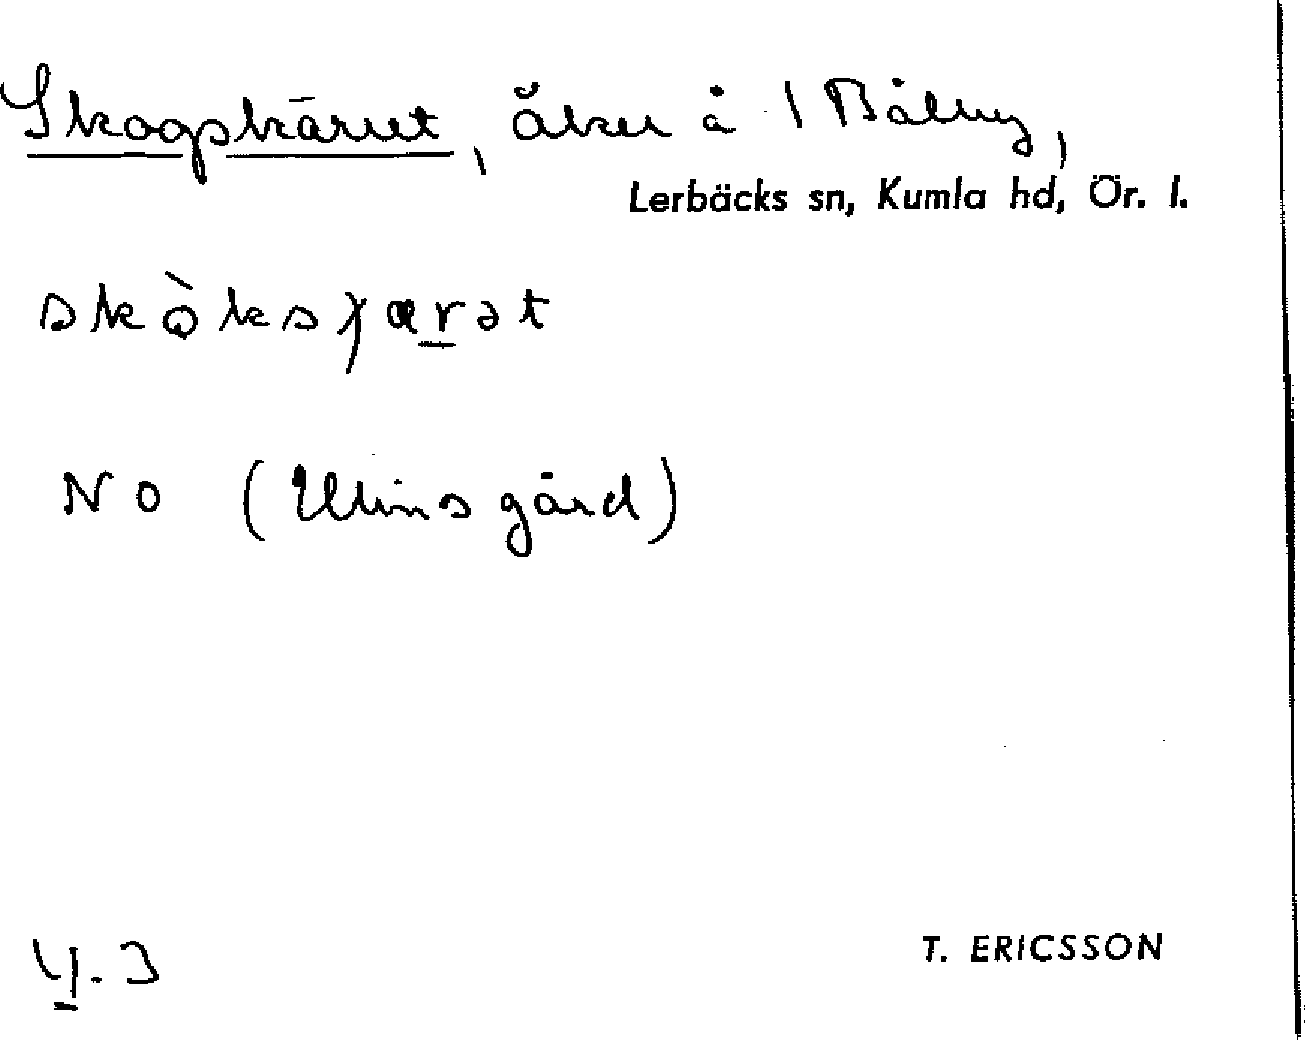 Skogskärret, åker å 1 Bålby,
Lerbäcks sn, Kumla hd, Ör. l.
skò̱ksχærət
NO (Ulins gård)
4.3
T. ERICSSON